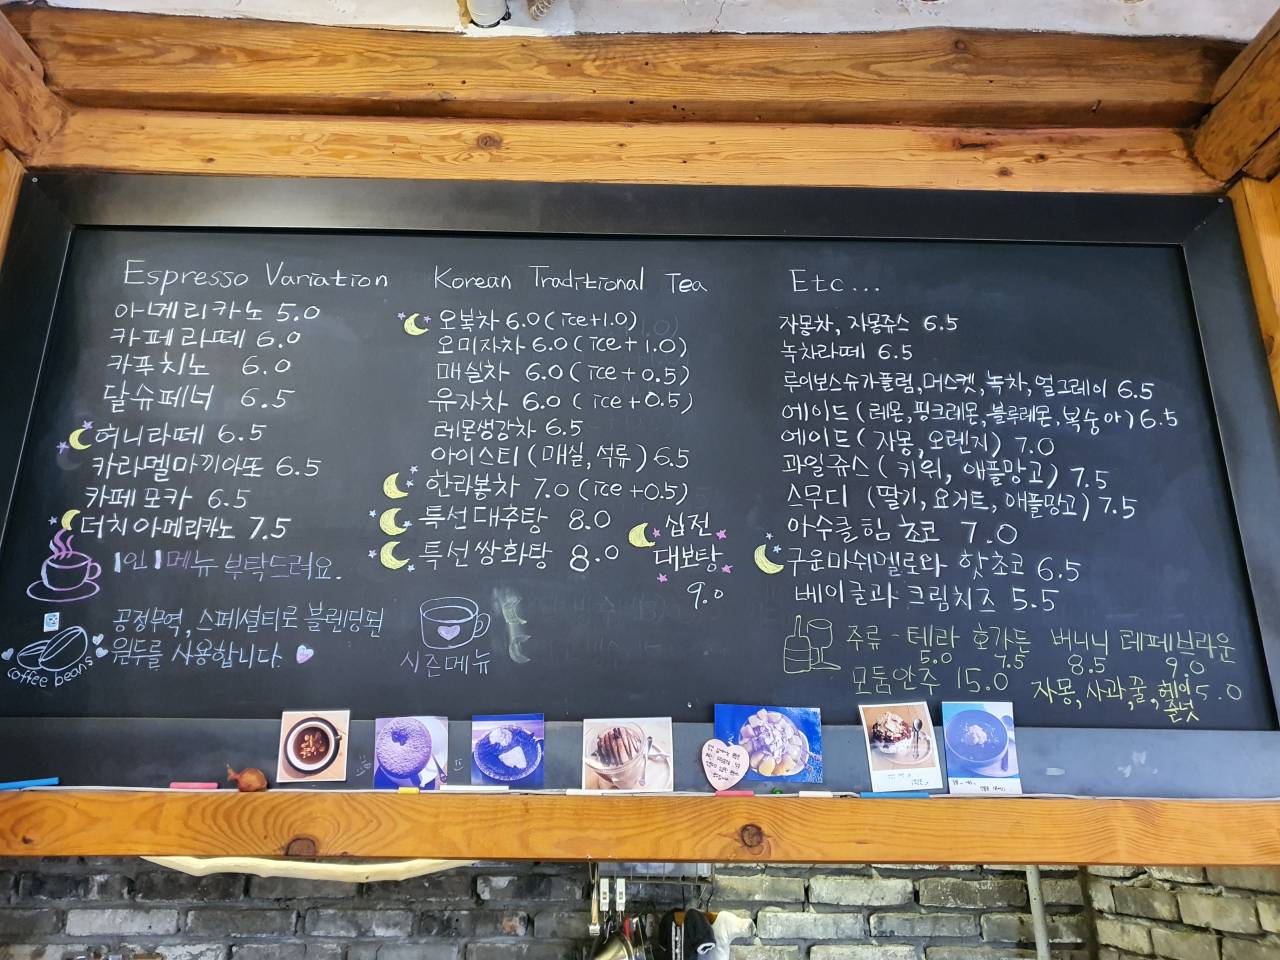 Espresso Variation
아메리카노 5.0
카페라떼 6.0
카푸치노 6.0
달슈페너 6.5
허니라떼 6.5
카라멜마끼아또 6.5
카페모카 6.5
더치아메리카노 7.5
1인 1메뉴 부탁드려요.
공정무역, 스페셜티로 블렌딩된
원두를 사용합니다.
coffee beans
Korean Traditional Tea
오복차 6.0 (ice+1.0)
오미자차 6.0 (ice+1.0)
매실차 6.0 (ice+0.5)
유자차 6.0 (ice+0.5)
레몬생강차 6.5
아이스티 (매실, 석류) 6.5
한라봉차 7.0 (ice+0.5)
특선대추탕 8.0
특선쌍화탕 8.0
십전
대보탕
9.0
시즌메뉴
Etc...
자몽차, 자몽쥬스 6.5
녹차라떼 6.5
루이보스슈가플럼, 머스켓, 녹차, 얼그레이 6.5
에이드 (레몬, 핑크레몬, 블루레몬, 복숭아) 6.5
에이드 (자몽, 오렌지) 7.0
과일쥬스 (키위, 애플망고) 7.5
스무디 (딸기, 요거트, 애플망고) 7.5
아수클힘 초코 7.0
구운마쉬멜로와 핫초코 6.5
베이글과 크림치즈 5.5
주류 - 테라 호가든 버니니 테페브라운
5.0 7.5 8.5 9.0
모둠안주 15.0 자몽, 사과, 꿀, 헤이 5.0
즐넛